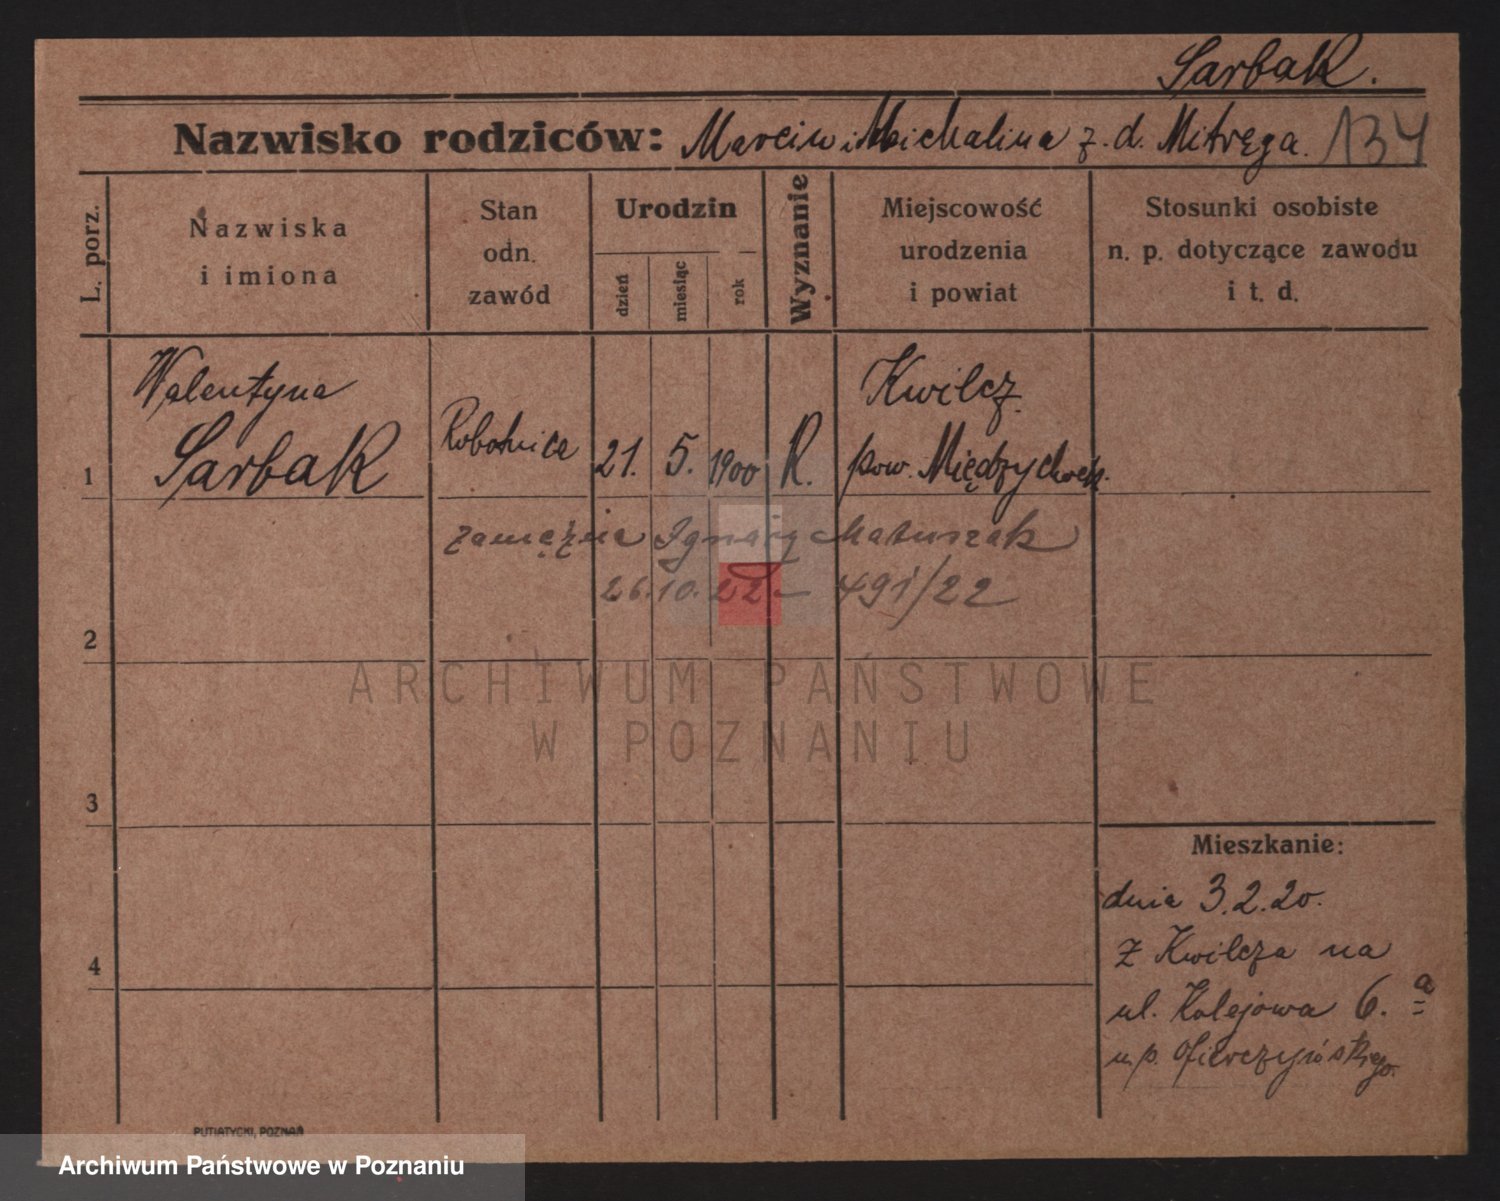 Sarbak.
Nazwisko rodziców: Marcin i Michalina z. d. Mitręga. 134
L. porz.
Nazwiska i imiona
Stan odn. zawód
Urodzin
dzień
miesiąc
rok
Wyznanie
Miejscowość urodzenia i powiat
Stosunki osobiste n. p. dotyczące zawodu i t. d.
Walentyna
Kwilcz.
1 Sarbak Robotnica 21. 5. 1900 R. pow. Międzychodz.
zamężna Ignacy Matuszak
26.10.22 – 491/22
2
ARCHIWUM PAŃSTWOWE
W POZNANIU
3
Mieszkanie:
dnia 3.2.20.
z Kwilcza na
4
ul. Kolejowa 6. a
u p.
PUTIATYCKI, POZNAŃ
Archiwum Państwowe w Poznaniu